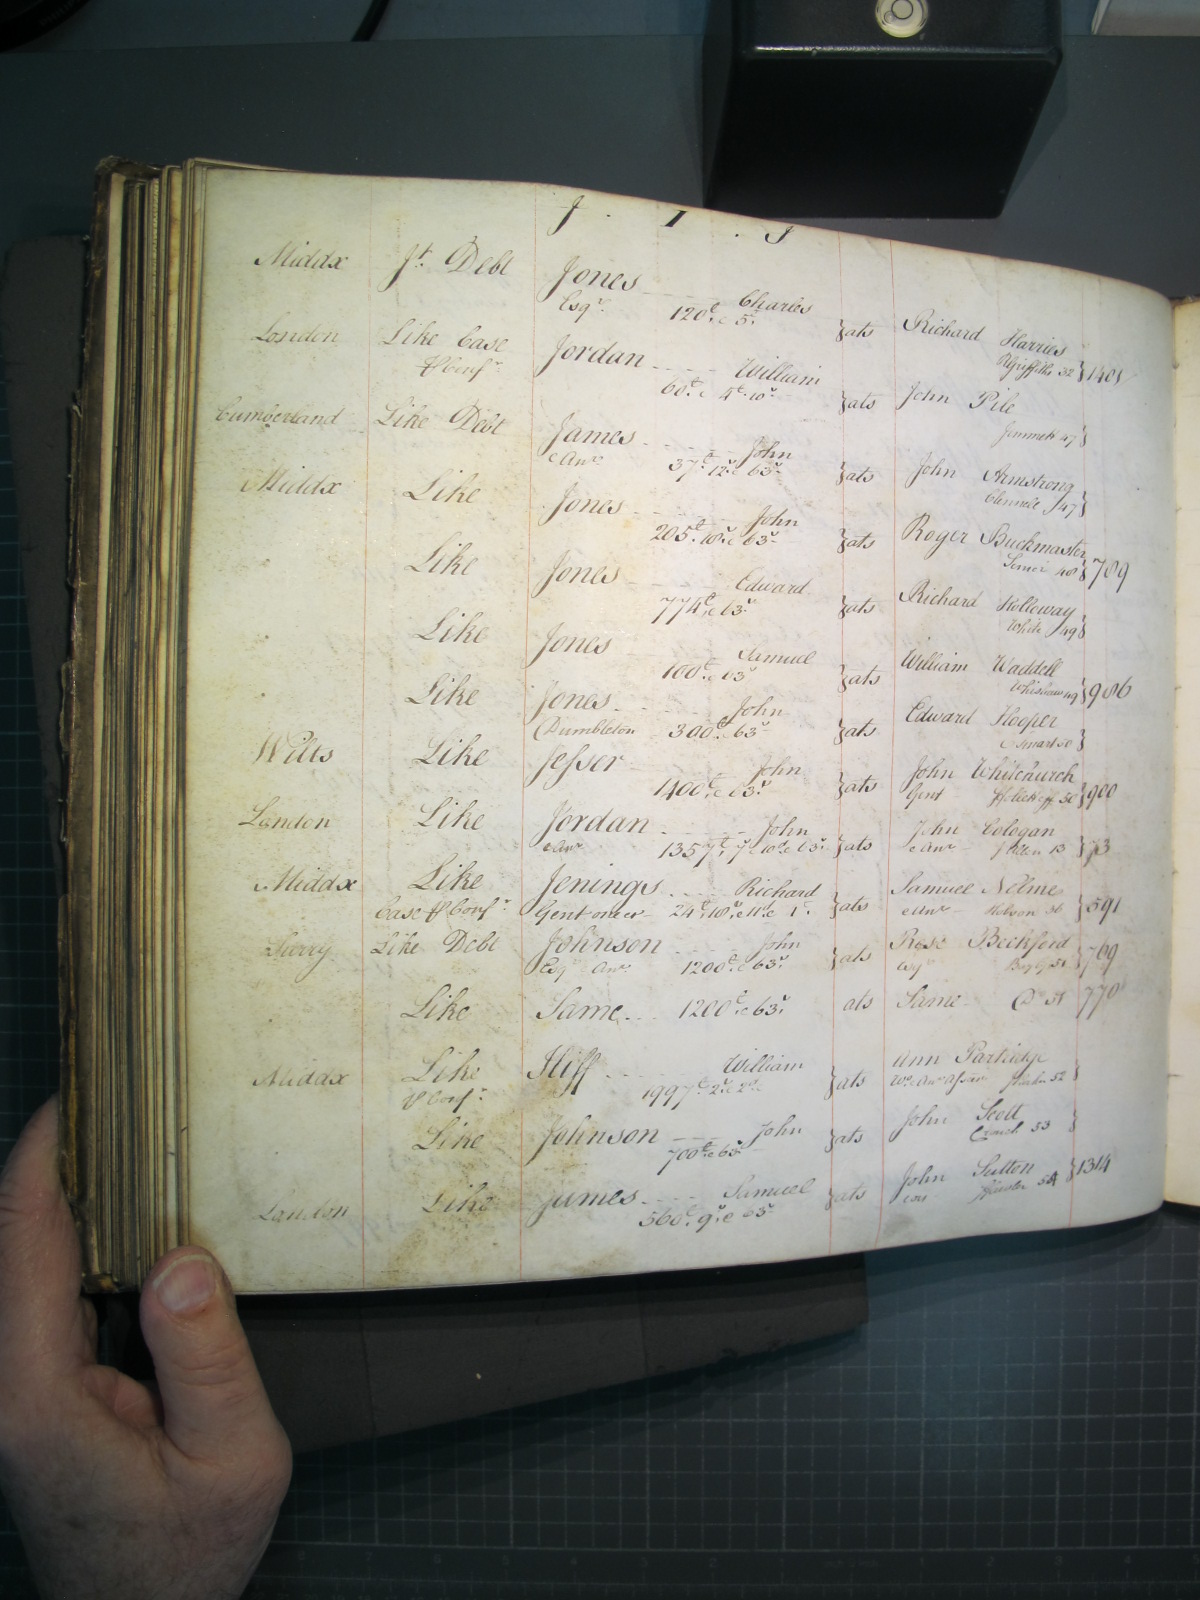 J . I . J
Middx Jt. Debt Jones Charles
Esqr. 120£ & 5s. } ats Richard Harries
London Like Case Jordan William Griffiths 32 } 1401
& Conf. 60£ & 4£. 10s. } ats John Pile
Cumberland Like Debt James John Jemmett 47 }
& Anr. 37£. 12s. & 63s. } ats John Armstrong
Middx Like Jones John Clennell 47 }
205£. 10s. & 63s. } ats Roger Buckmaster
Like Jones Edward 48 } 789
774£. & 63s. } ats Richard Holloway
Like Jones Samuel White 49 }
100£. & 63s. } ats William Waddell
Like Jones John Whishaw 49 } 986
Dumbleton 300£. & 63s. } ats Edward Hooper
Wilts Like Jesser John Smart 50 }
1400£. & 63s. } ats John Whitchurch
Gent 50 } 900
London Like Jordan John
& Anr. 1357£. 7s. 10d. & 63s. } ats John Cologan
& Anr. Allen 13 } 73
Middx Like Jenings Richard Samuel Nelme
Case & Conf. Gent oneer 24£. 18s. & 11d. & 1s. } ats & Anr. 36 } 591
Surry Like Debt Johnson John Rose Beckford
Esqr. Anr. 1200£. & 63s. } ats Esqr. 51 } 769
Like Same 1200£. & 63s. ats Same Do 51 770
Middx Like Iliff William Ann Partridge
& Conf. 1997£. 2s. & 2d. } ats 52 }
Like Johnson John John Scott
700£. & 63s. } ats Crouch 53 }
London Like James Samuel John Sutton
560£. 9s. & 63s. } ats 54 } 1314